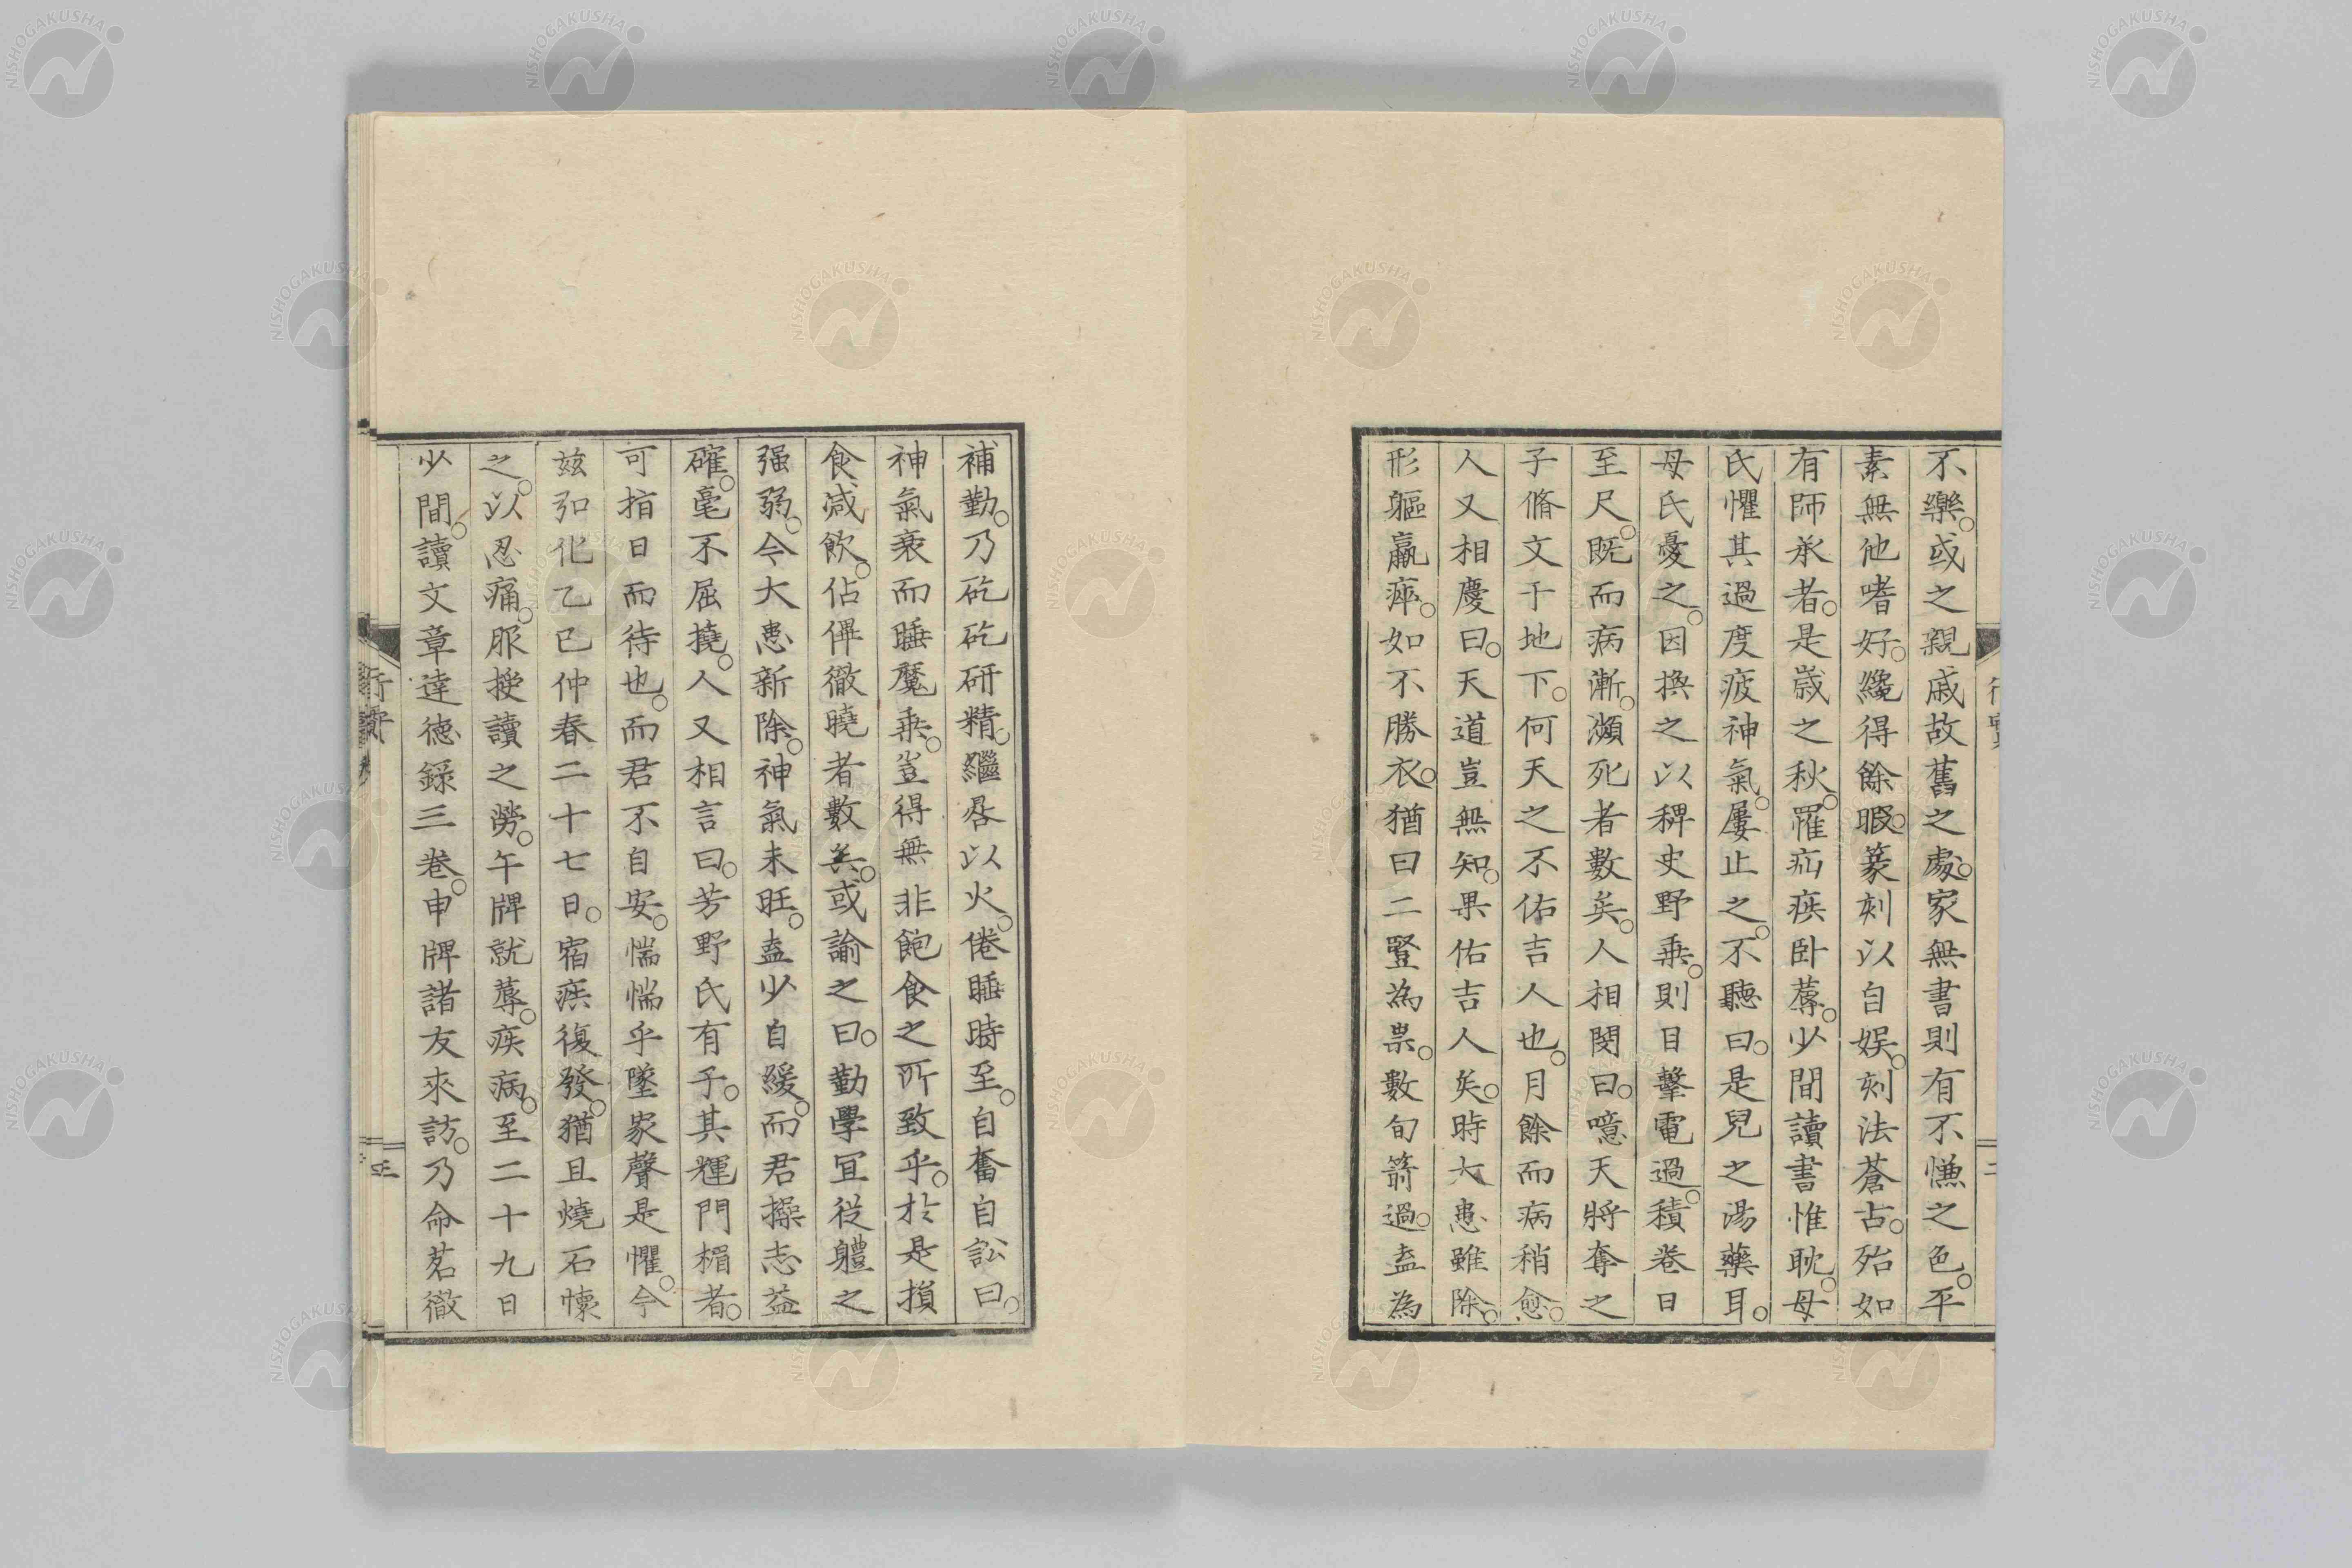 不樂。或之親戚故舊之處。家無書則有不慊之色。平
素無他嗜好。纔得餘暇。篆刻以自娯。刻法蒼古。殆如
有師承者。是歳之秋。罹疝疾卧蓐。少間讀書惟耽。母
氏懼其過度疲神氣。屢止之。不聽曰。是兒之湯藥耳。
母氏憂之。因換之以稗史野乘。則目擊電過。積卷日
至尺。既而病漸。瀕死者數矣。人相閔曰。噫天將奪之
子脩文于地下。何天之不佑吉人也。月餘而病稍愈。
人又相慶曰。天道豈無知。果佑吉人矣。時大患雖除。
形軀羸瘁。如不勝衣。猶曰二豎為祟。數旬箭過。盍為
補勤。乃矻矻研精。繼晷以火。倦睡時至。自奮自訟曰。
神氣衰而睡魔乘。豈得無非飽食之所致乎。於是損
食減飲。佔俾徹曉者數矣。或諭之曰。勤學冝從軆之
强弱。今大患新除。神氣未旺。盍少自緩。而君操志益
確。毫不屈撓。人又相言曰。芳野氏有子。其輝門楣者。
可指日而待也。而君不自安。惴惴乎墜家聲是懼。今
玆弘化乙巳仲春二十七日。宿疾復發。猶且燒石懷
之。以忍痛。服挍讀之勞。午牌就蓐。疾病。至二十九日
少間。讀文章達徳錄三卷。申牌諸友來訪。乃命茗徹
行實
三